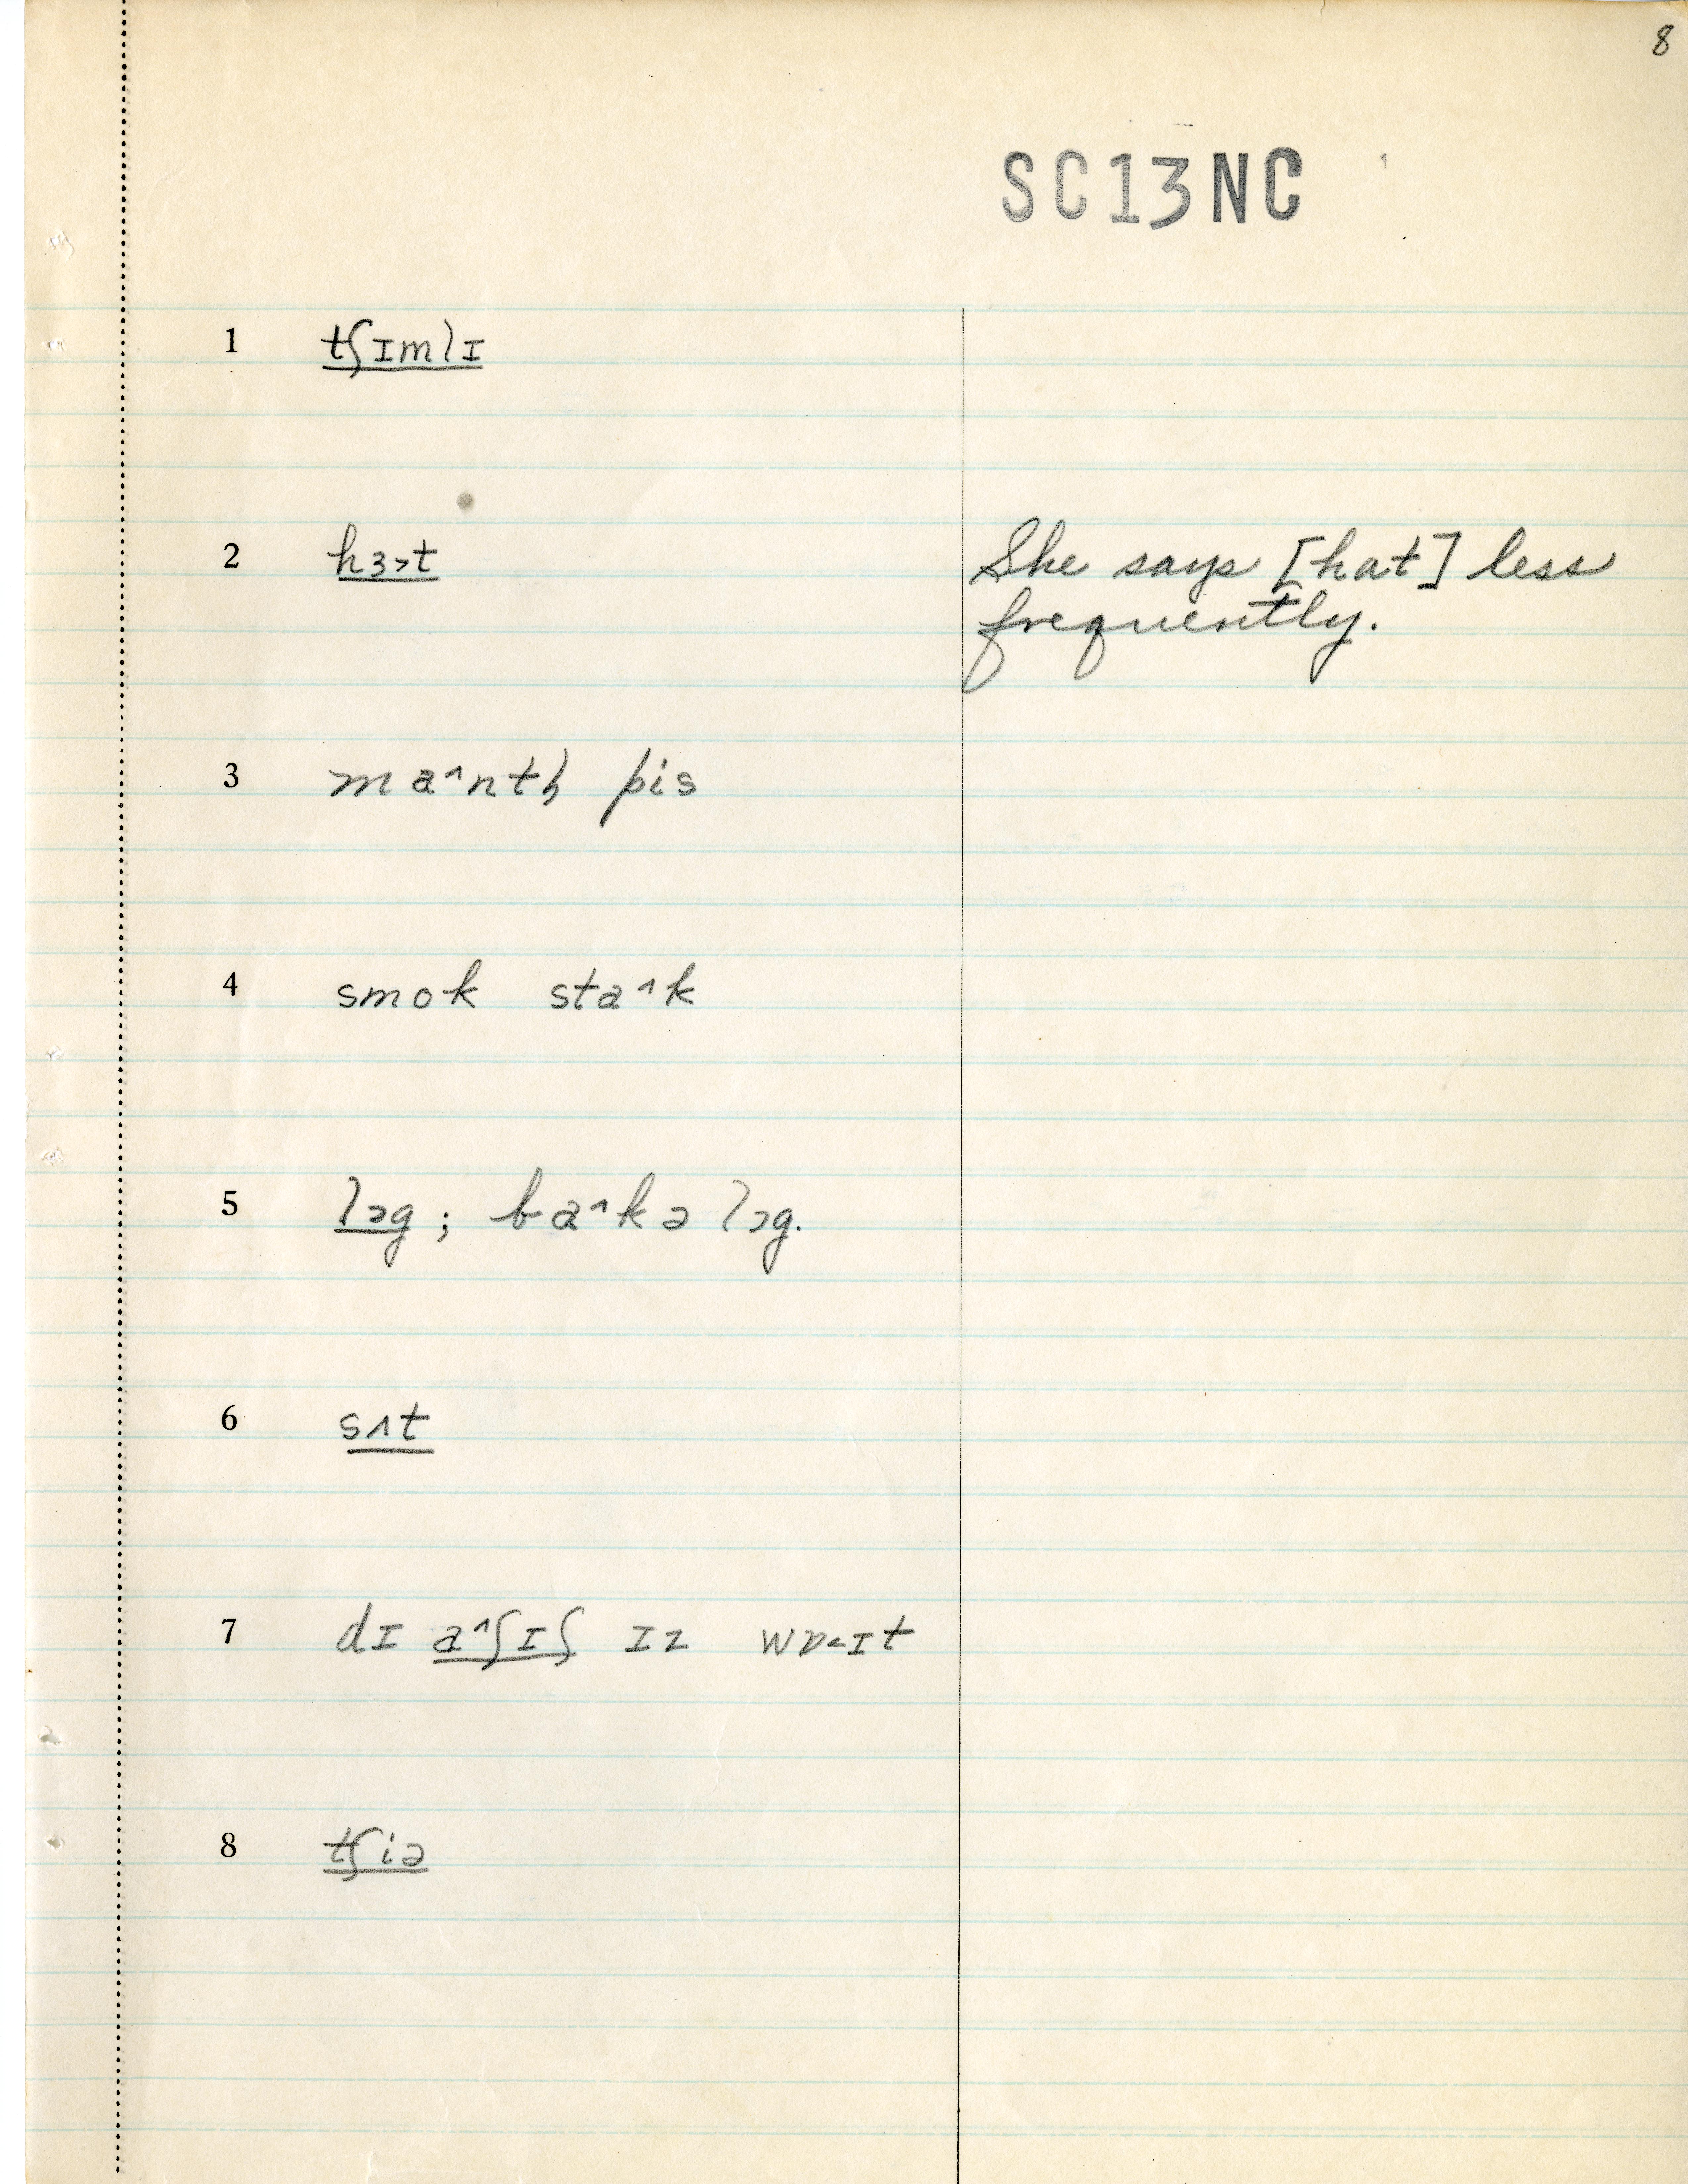 8
SC13NC
1 tʃɪmlɪ
2 hɜ˃t She says [hat] less
frequently.
3 ma^ntḷ pis
4 smok sta^k
5 lɔg ; ba^kə lɔg.
6 sʌt
7 dɪ a^ʃɪʃ ɪz wɒ˂ɪt
8 tʃiə